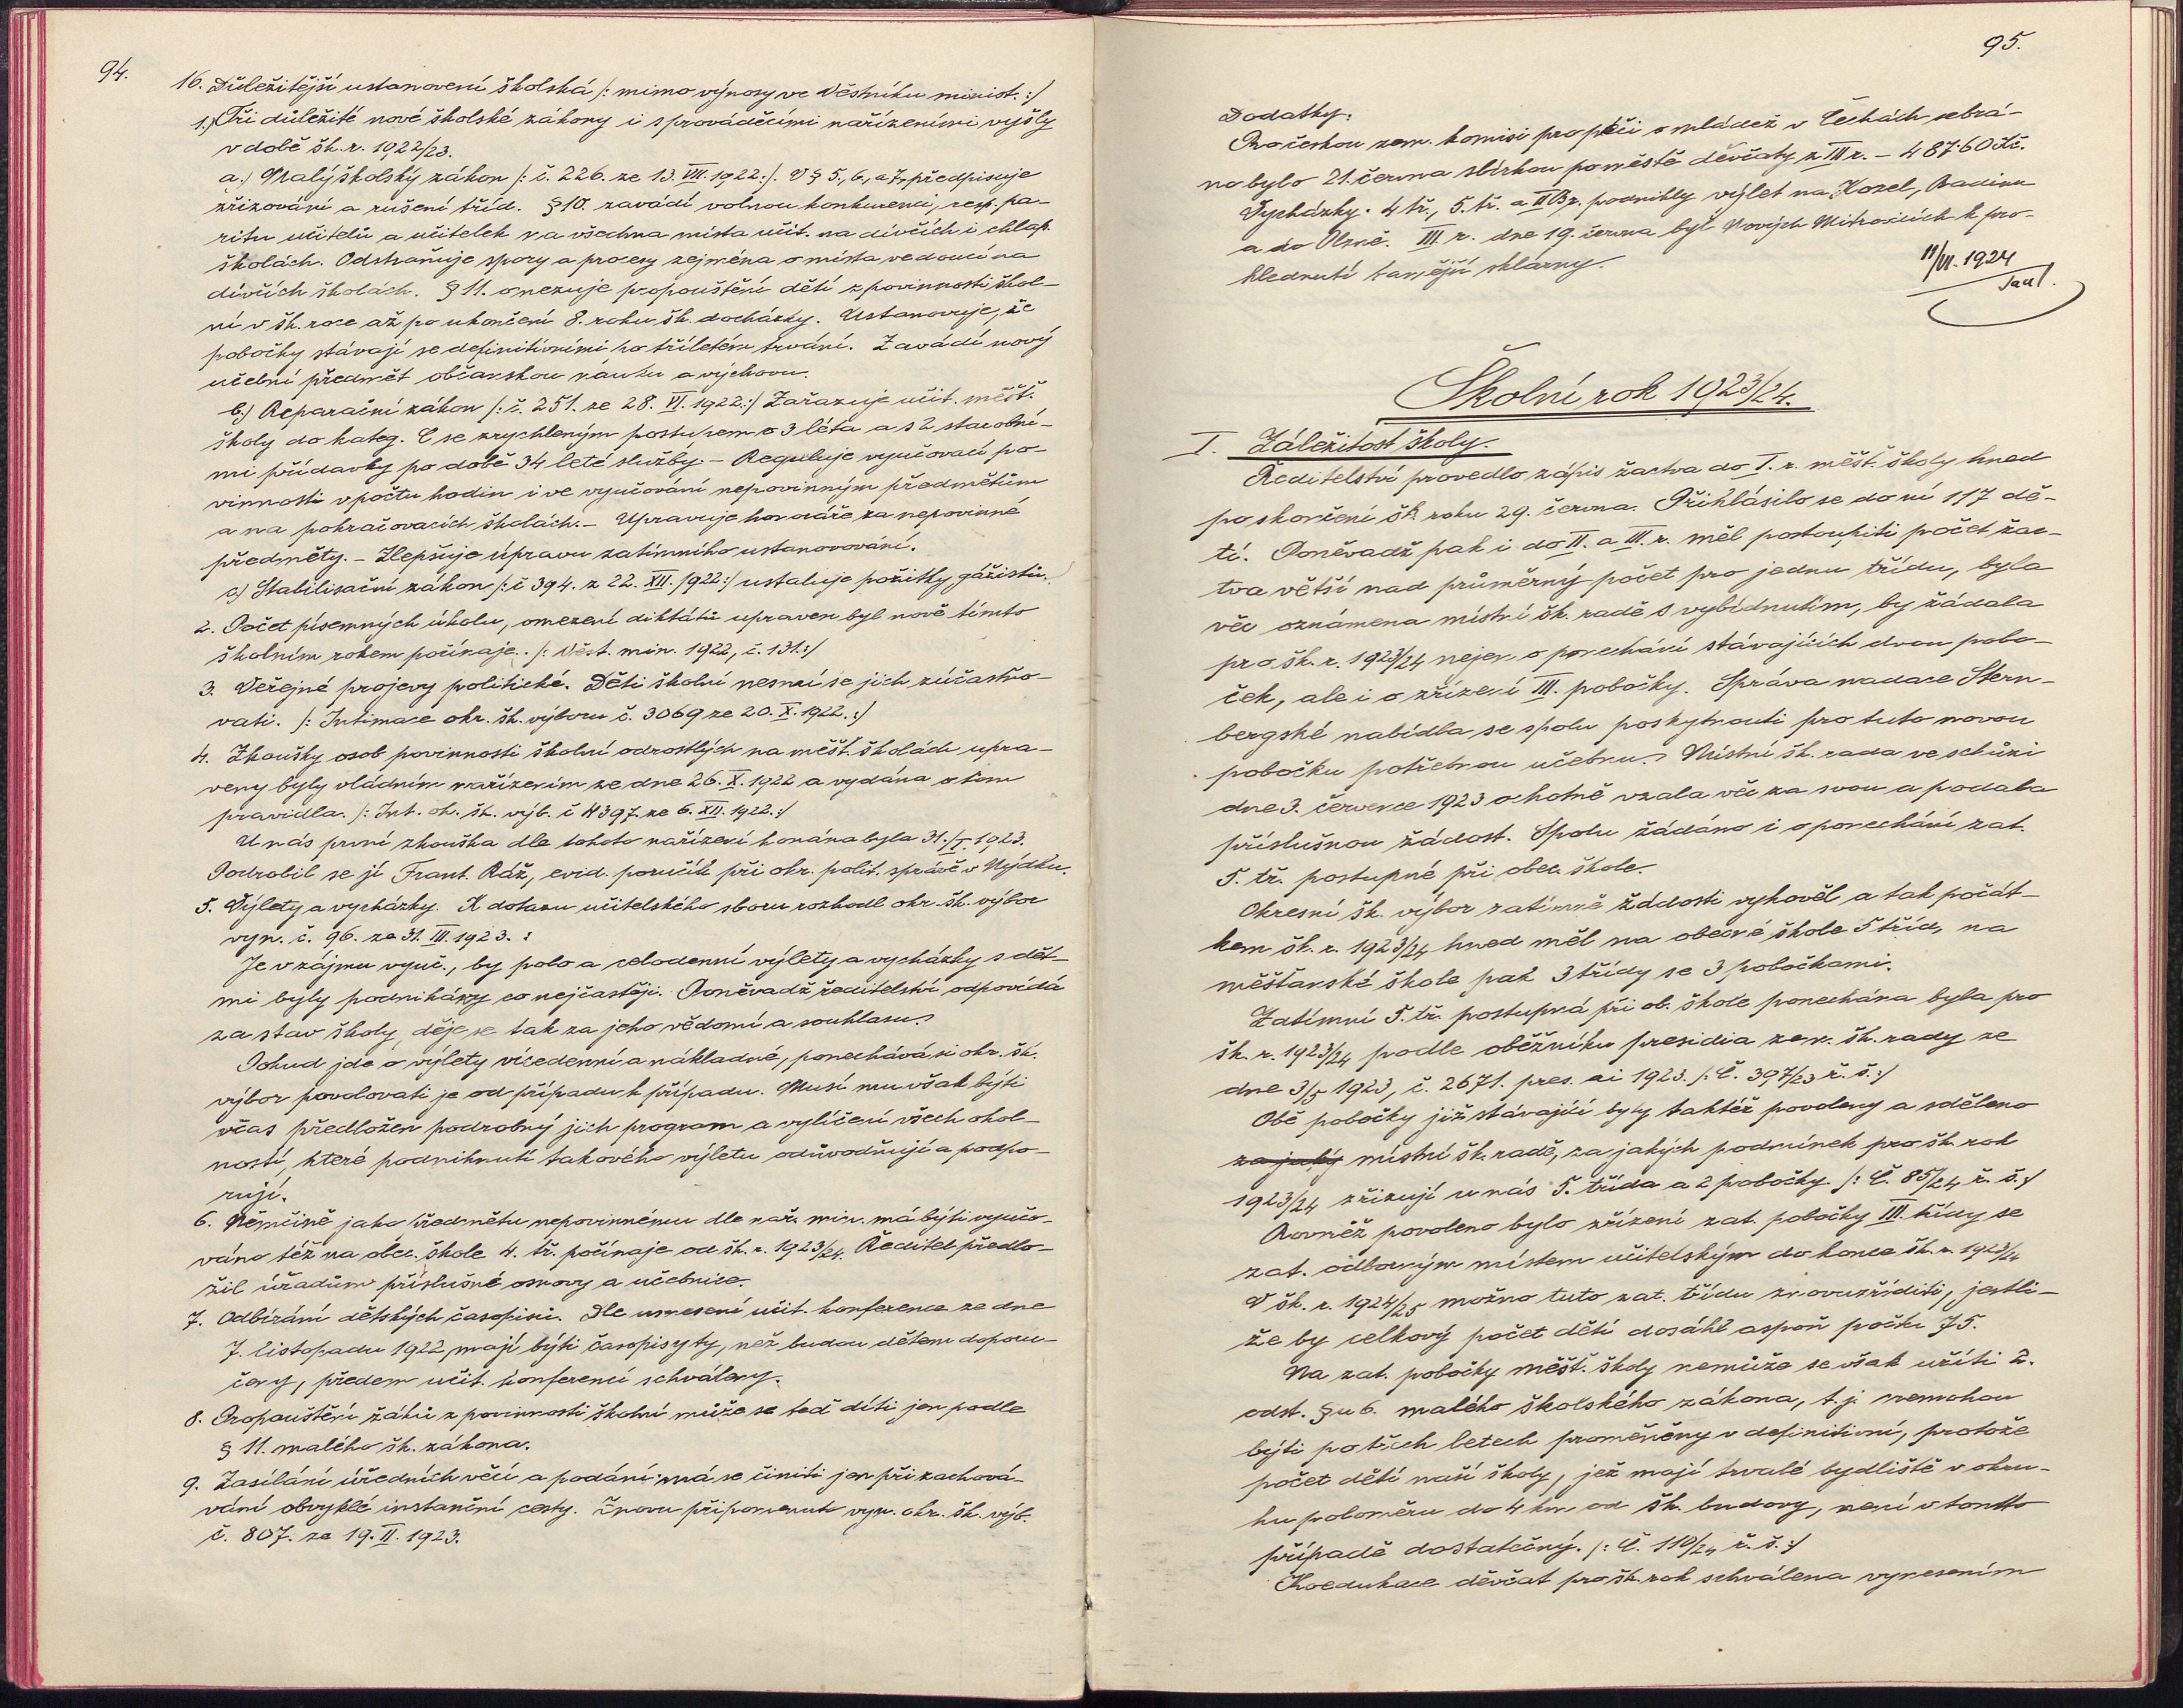 94.
16. Důležitější ustanovení školská /: mimo výnosy ve Věstníku minist. :/
1.) Tři důležité nové školské zákony i s prováděcími nařízeními vyšly
v době šk. r. 1922/23.
a.) Malý školský zákon /: č. 226. ze 13. VII. 1922 :/. V § 5., 6., a 7. předpisuje
zřizování a rušení tříd. § 10. zavádí volnou konkurenci, resp. pa-
ritu učitelů a učitelek na všechna místa učit. na dívčích i chlap.
školách. Odstraňuje spory a procesy zejména o místa vedoucí na
dívčích školách. § 11. omezuje propouštění dětí z povinnosti škol-
ní v šk. roce až po ukončení 8. roku šk. docházky. Ustanovuje, že
pobočky stávají se definitivními po tříletém trvání. Zavádí nový
učební předmět občanskou nauku a výchovu.
b.) Reparační zákon /: č. 251. ze 28. VI. 1922 :/ Zařazuje učit. měšť.
školy do kateg. C se zrychleným postupem o 3 léta a s 2 starobní-
mi přídavky po době 34 leté služby. – Reguluje vyučovací po-
vinnosti v počtu hodin i ve vyučování nepovinným předmětům
a na pokračovacích školách. – Upravuje honoráře za nepovinné
předměty. – Zlepšuje úpravu zatímního ustanovování.
c) Stabilisační zákon /: č 394. z 22. XII. 1922 :/ ustaluje požitky gážistů.
2. Počet písemných úkolů, omezení diktátů upraven byl nově tímto
školním rokem počínaje. /: Věst. min. 1922, č. 131. :/
3. Veřejné projevy politické. Děti školní nesmí se jich zúčastňo-
vati. /: Intimace okr. šk. výboru č. 3069 ze 20. X. 1922. :/
4. Zkoušky osob povinnosti školní odrostlých na měšť. školách upra-
veny byly vládním nařízením ze dne 26. X. 1922 a vydána o tom
pravidla. /: Int. ok. šk. výb. č 4397. ze 6. XII. 1922. :/
U nás první zkouška dle tohoto nařízení konána byla 31./I. 1923.
Podrobil se jí Frant. Ráž, evid. poručík při okr. polit. správě v Mýdku.
5. Výlety a vycházky. K dotazu učitelského sboru rozhodl okr. šk. výbor
vyn. č. 96. ze 31. III. 1923. :
Je v zájmu vyuč., by polo a celodenní výlety a vycházky s dět-
mi byly podnikány co nejčastěji. Poněvadž ředitelství odpovídá
za stav školy, děje se tak za jeho vědomí a souhlasu.
Pokud jde o výlety vícedenní a nákladné, ponechává si okr. šk.
výbor povolovati je od případu k případu. Musí mu však býti
včas předložen podrobný jich program a vylíčení všech okol-
ností, které podniknutí takového výletu odůvodňují a podpo-
rují.
6. Němčině jako předmětu nepovinnému dle nař. min. má býti vyučo-
váno též na obec. škole 4. tř. počínaje od šk. r. 1923/24. Ředitel předlo-
žil úřadům příslušné osnovy a učebnice.
7. Odbírání dětských časopisů. Dle usnesení učit. konference ze dne
7. listopadu 1922, mají býti časopisy ty, než budou dětem doporu-
čeny, předem učit. konferencí schváleny.
8. Propouštění žáků z povinnosti školní může se teď díti jen podle
§ 11. malého šk. zákona.
9. Zasílání úředních věcí a podání má se činiti jen při zachová-
vání obvyklé instanční cesty. Znovu připomenuto vyn. okr. šk. výb.
č. 807. ze 19. II. 1923.
95.
Dodatky.
Pro českou zem. komisi pro péči o mládež v Čechách sebrá-
no bylo 21. června sbírkou po městě děvčaty z III r. – 487·60 Kč.
Vycházky. 4 tř., 5. tř. a II B r. podnikly výlet na Kozel, Radinu
a do Plzně. III. r. dne 19. června byl v Nových Mitrovicích k pro-
hlédnutí tamější sklárny.
11/VI. 1924
Školní rok 1923/24.
I. Záležitost školy.
Ředitelství provedlo zápis žactva do I. r. měšť. školy hned
po skončení šk roku 29. června. Přihlásilo se do ní 117 dě-
tí. Poněvadž pak i do II. a III. r. měl postoupiti počet žac-
tva větší nad průměrný počet pro jednu třídu, byla
věc oznámena místní šk. radě s vybídnutím, by žádala
pro šk. r. 1923/24 nejen o ponechání stávajících dvou pobo-
ček, ale i o zřízení III. pobočky. Správa nadace Stern-
bergské nabídla se spolu poskytnouti pro tuto novou
pobočku potřebnou učebnu. Místní šk. rada ve schůzi
dne 3. července 1923 ochotně vzala věc za svou a podala
příslušnou žádost. Spolu žádáno i o ponechání zat.
5. tř. postupné při obec. škole.
Okresní šk. výbor zatímně žádosti vyhověl a tak počát-
kem šk. r. 1923/24 hned měl na obecné škole 5 tříd, na
měšťanské škole pak 3 třídy se 3 pobočkami.
Zatímní 5. tř. postupná při ob. škole ponechána byla pro
šk. r. 1923/24 podle oběžníku presidia zem. šk. rady ze
dne 3/5 1923, č. 2671. pres. ai 1923. /: Č. 397/23 ř. š. :/
Obě pobočky již stávající byly taktéž povoleny a sděleno
za jaký místní šk. radě, za jakých podmínek pro šk. rok
1923/24 zřizují u nás 5. třída a 2 pobočky. /: Č. 85/24 ř. š. :/
Rovněž povoleno bylo zřízení zat. pobočky III. třídy se
zat. odborným místem učitelským do konce šk. r. 1923/24
V šk. r. 1924/25 možno tuto zat. třídu znovuzříditi, jestli-
že by celkový počet dětí dosáhl aspoň počtu 75.
Na zat. pobočky měšť. školy nemůže se však užíti 2.
odst. § u 6. malého školského zákona, t. j. nemohou
býti po třech letech proměněny v definitivní, protože
počet dětí naší školy, jež mají trvalé bydliště v okru-
hu poloměru do 4 km od šk. budovy, není v tomto
případě dostatečný. /: Č. 110/24 ř. š. :/
Koedukace děvčat pro šk. rok schválena vynesením